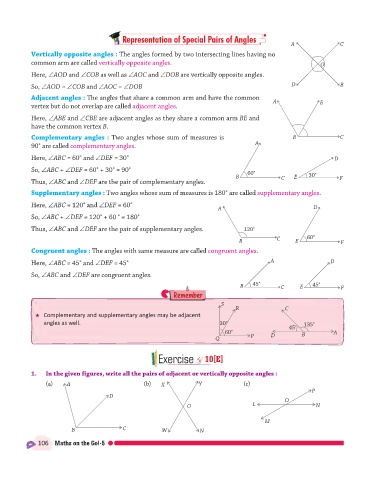 Representation of Special Pairs of Angles
Vertically opposite angles : The angles formed by two intersecting lines having no
common arm are called vertically opposite angles.
Here, ∠AOD and ∠COB as well as ∠AOC and ∠DOB are vertically opposite angles.
So, ∠AOD = ∠COB and ∠AOC = ∠DOB
A C
O
D B
Adjacent angles : The angles that share a common arm and have the common
vertex but do not overlap are called adjacent angles.
Here, ∠ABE and ∠CBE are adjacent angles as they share a common arm BE and
have the common vertex B.
A E
B C
Complementary angles : Two angles whose sum of measures is
90° are called complementary angles.
Here, ∠ABC = 60° and ∠DEF = 30°
So, ∠ABC + ∠DEF = 60° + 30° = 90°
Thus, ∠ABC and ∠DEF are the pair of complementary angles.
A
60°
B C
D
30°
E F
Supplementary angles : Two angles whose sum of measures is 180° are called supplementary angles.
Here, ∠ABC = 120° and ∠DEF = 60°
So, ∠ABC + ∠DEF = 120° + 60 ° = 180°
Thus, ∠ABC and ∠DEF are the pair of supplementary angles.
A
120°
B C
D
60°
E F
Congruent angles : The angles with same measure are called congruent angles.
Here, ∠ABC = 45° and ∠DEF = 45°
So, ∠ABC and ∠DEF are congruent angles.
A
45°
B C
D
45°
E F
Remember
★ Complementary and supplementary angles may be adjacent
angles as well.
S
R
30°
60°
Q P
C
45° 135°
D B A
Exercise 10[E]
1. In the given figures, write all the pairs of adjacent or vertically opposite angles :
(a) A
D
B C
(b) X Y
O
W N
(c)
P
O
L N
M
106 Maths on the Go!-5